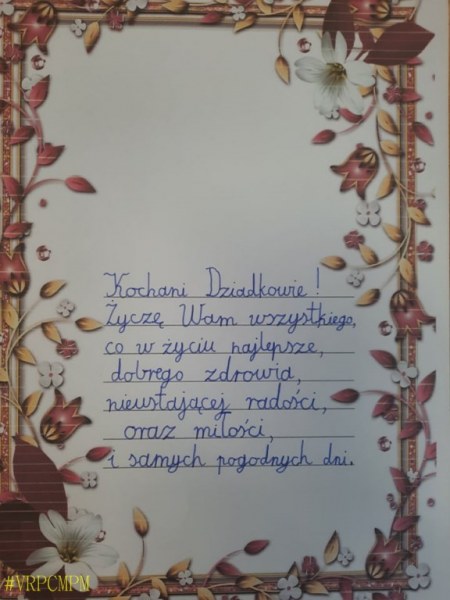 Kochani Dziadkowie!
Życzę Wam wszystkiego,
co w życiu najlepsze,
dobrego zdrowia,
nieustającej radości,
oraz miłości,
i samych pogodnych dni.
#VRPCMPM